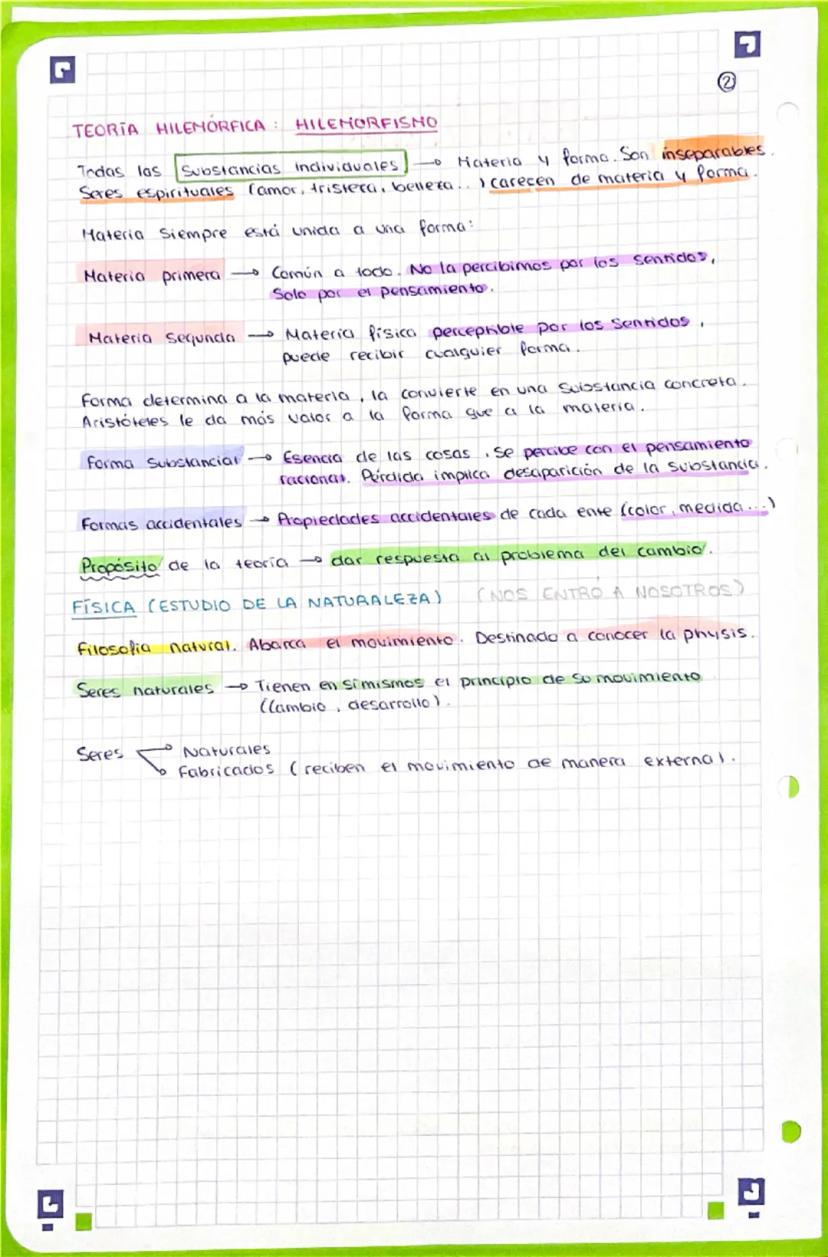 ②
TEORÍA HILEMÓRFICA: HILEMORFISMO
Todas las Substancias individuales → Materia y forma. Son inseparables.
Seres espirituales (amor, tristeza, belleza...) carecen de materia y forma.
Materia siempre está unida a una forma:
Materia primera → Común a todo. No la percibimos por los sentidos,
Solo por el pensamiento.
Materia Segunda → Materia física perceptible por los sentidos,
puede recibir cualquier forma.
Forma determina a la materia, la convierte en una substancia concreta.
Aristóteles le da más valor a la forma que a la materia.
Forma Substancial → Esencia de las cosas, se percibe con el pensamiento
racional. Pérdida implica desaparición de la substancia.
Formas accidentales → Propiedades accidentales de cada ente (color, medida...)
Propósito de la teoría → dar respuesta al problema del cambio.
FÍSICA (ESTUDIO DE LA NATURALEZA) (NOS ENTRÓ A NOSOTROS)
Filosofía natural. Abarca el movimiento. Destinado a conocer la physis.
Seres naturales → Tienen en sí mismos el principio de su movimiento
(Cambio, desarrollo).
Seres → Naturales
→ Fabricados (reciben el movimiento de manera external.